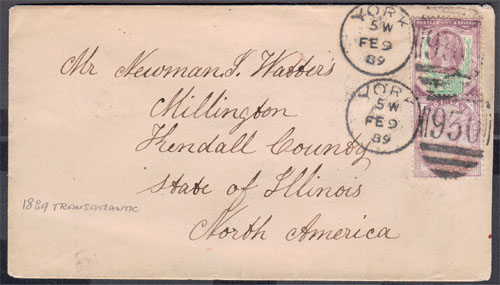 YORK
5W
FE 9
89
YORK
5W
FE 9
89
950
Mr Newman S. Watters
Millington
Kendall County
State of Illinois
North America
1889 TRANSATLANTIC